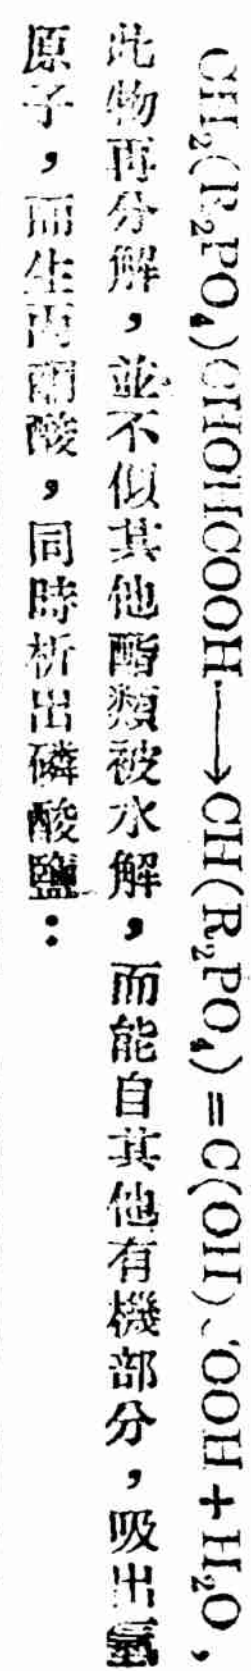 CH₂(R₂PO₄)CHOHCOOH⟶CH(R₂PO₄)=C(OH)COOH+H₂O,
此物再分解，並不似其他酯類被水解，而能自其他有機部分，吸出氫
原子，而生丙酮酸，同時析出磷酸鹽：